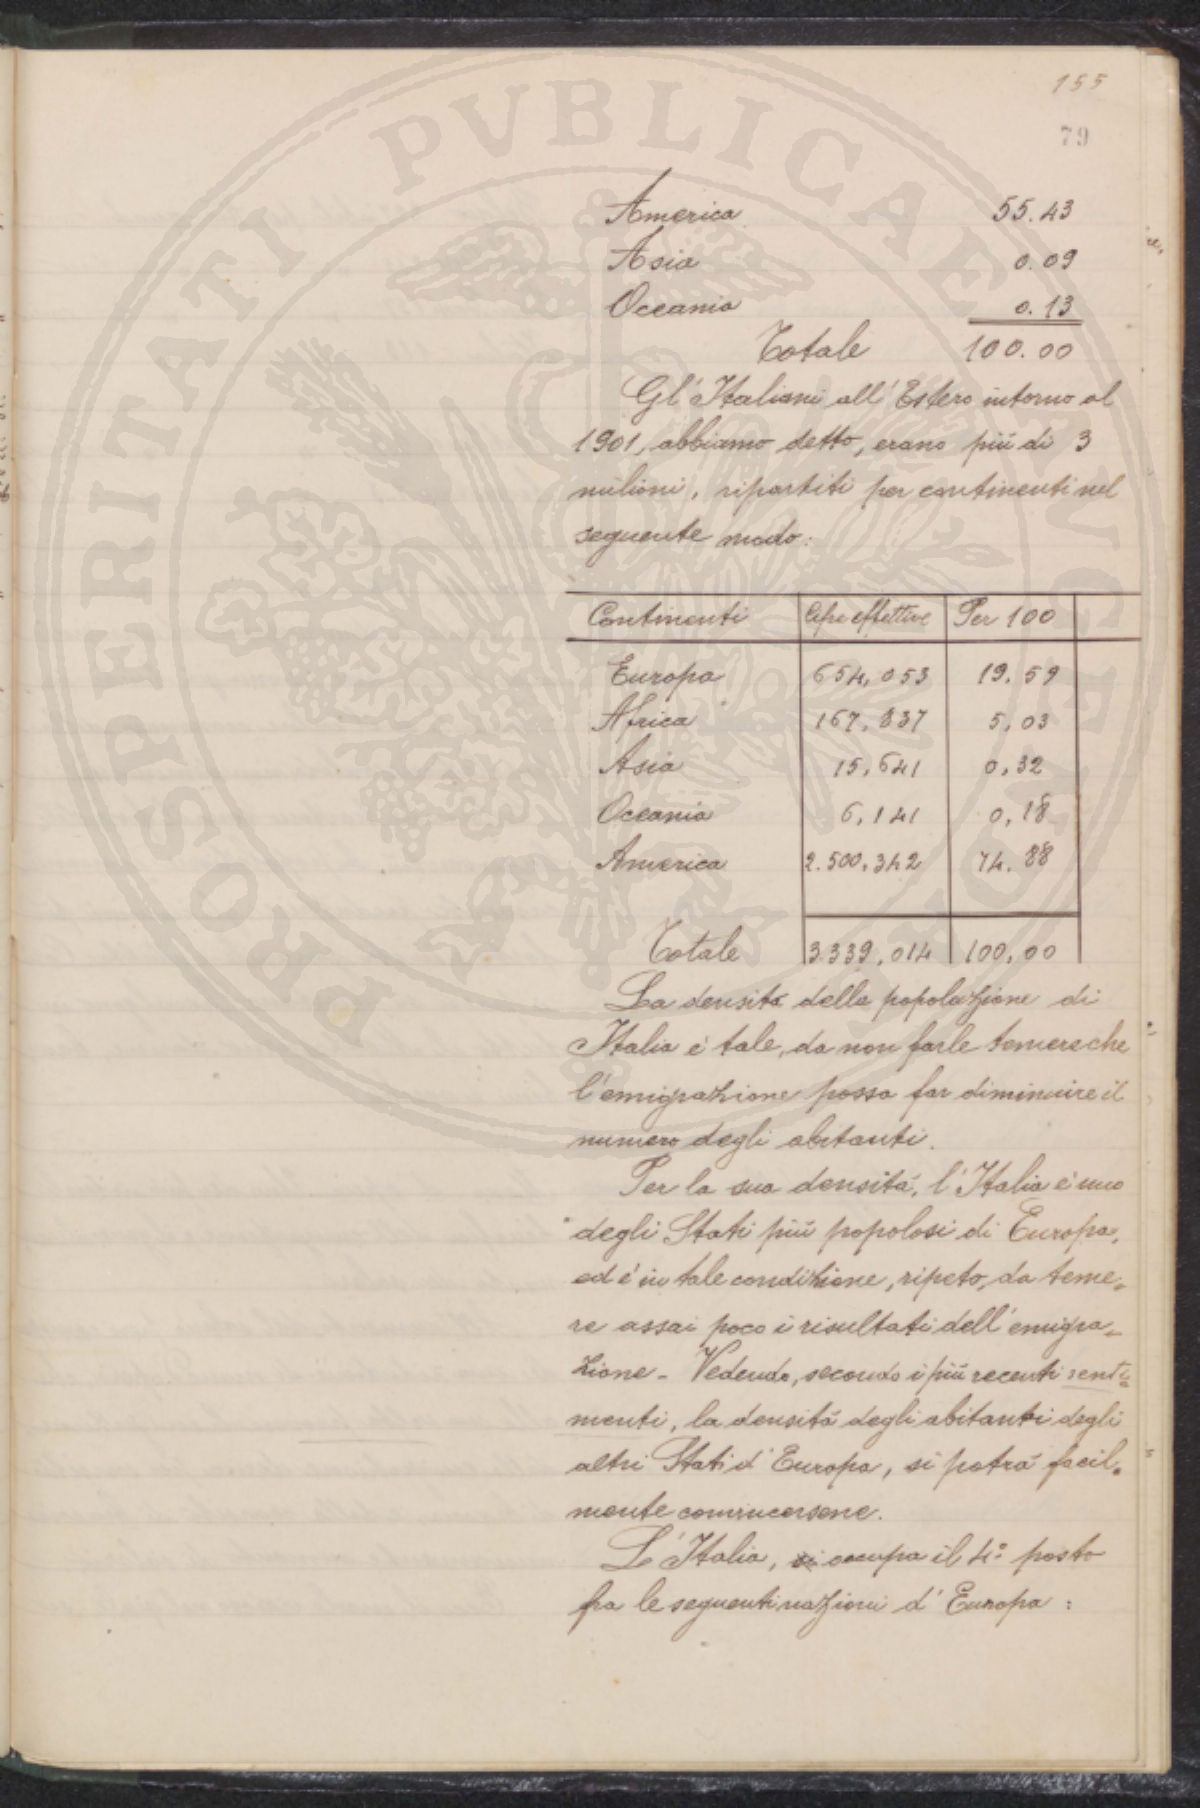 155
79
America 55.43
Asia 0.09
Oceania 0.13
Totale 100.00
Gl'Italiani all'Estero intorno al
1901, abbiamo detto, erano più di 3
milioni, ripartiti per continenti nel
seguente modo:
Continenti Cifre effettive Per 100
Europa 654,053 19.59
Africa 167,837 5,03
Asia 15,641 0,32
Oceania 6,141 0,18
America 2.500,342 74.88
Totale 3.339,014 100,00
La densità della popolazione di
Italia é tale, da non farle temere che
l'emigrazione possa far diminuire il
numero degli abitanti.
Per la sua densitá, l'Italia é uno
degli Stati più popolosi di Europa,
ed é in tale condizione, ripeto, da teme=
re assai poco i risultati dell'emigra=
zione - Vedendo, secondo i più recenti senti=
menti, la densitá degli abitanti degli
altri Stati d'Europa, si potrá facil=
mente convincersene.
L'Italia, occupa il 4º posto
fra le seguenti nazioni d'Europa:
PROSPERITATI PVBLICAE